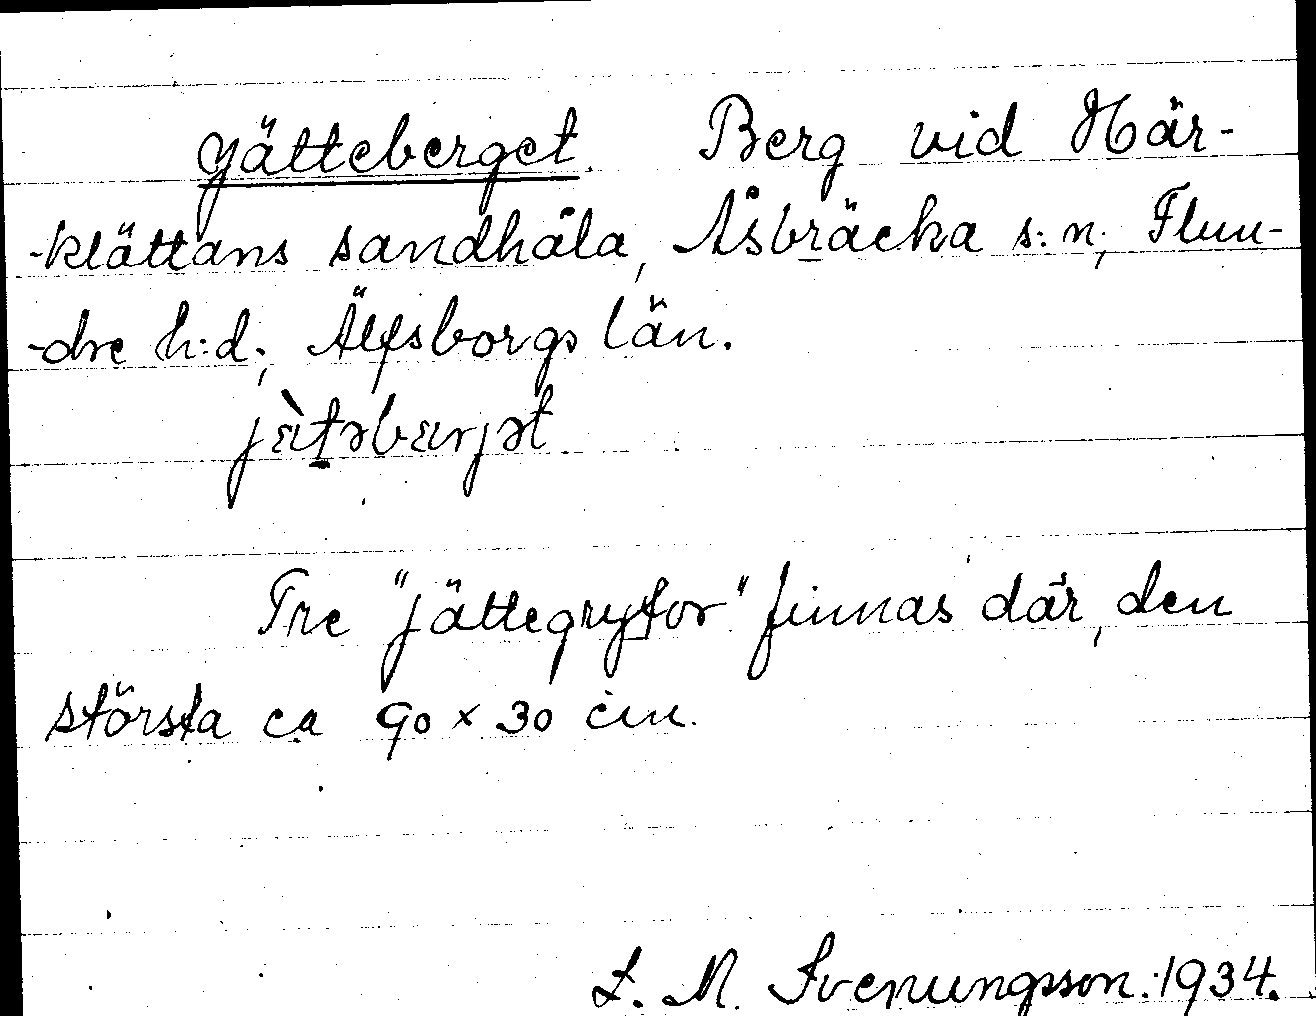 Jätteberget. Berg vid Här-
-klättans sandhåla, Åsbräcka s:n, Flun-
-dre h:d, Älfsborgs län.
jæ̀təbærjət
Tre "jättegrytor" finnas där, den
största ca 90 x 30 cm.
L. M. Svenungsson. 1934.